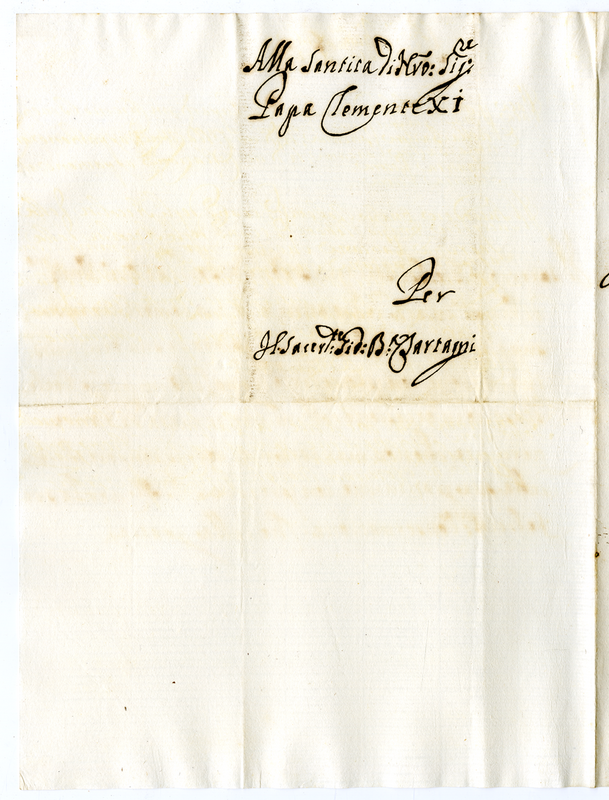 Alla Santita di Nro: Sig:re
Papa Clemente XI
Per
Il Sacerd:te Gio: B: